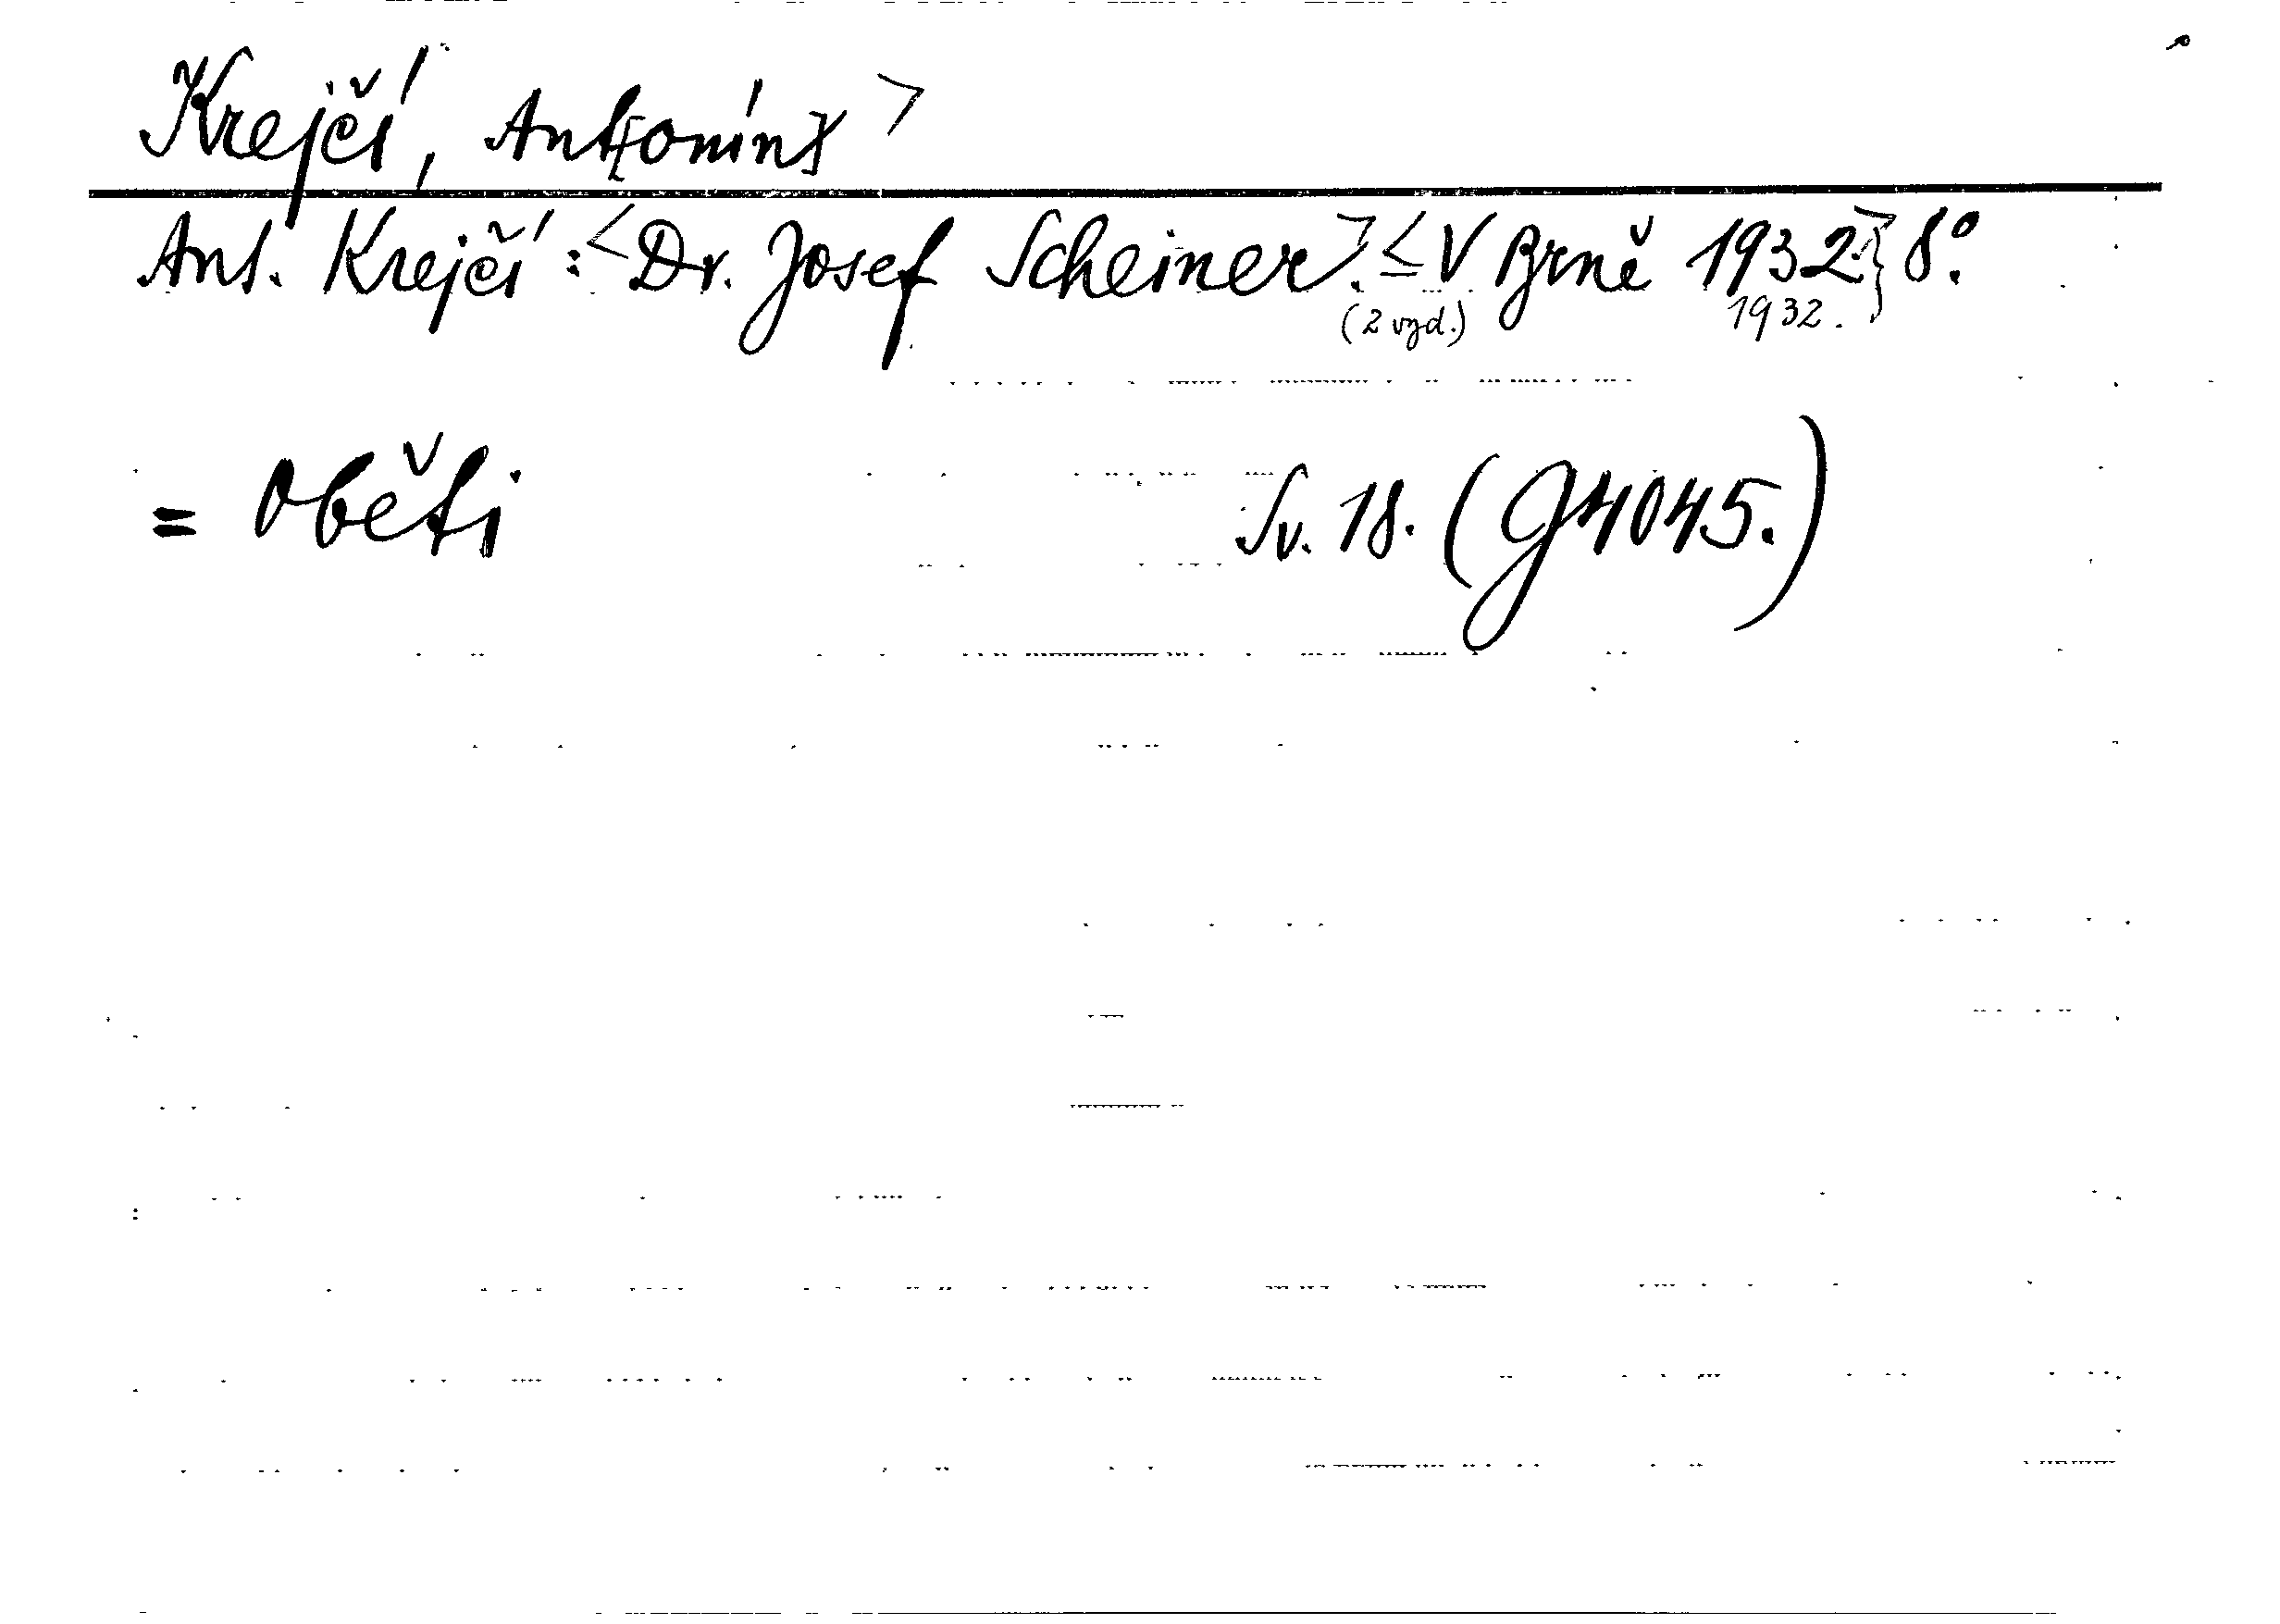 Krejčí, Ant[onín] >
Ant. Krejčí: <Dr. Josef Scheiner>. ≤ V Brně 1932.>} 8°.
(2 vyd.) 1932.
= Oběti Sv. 18. (G4045.)